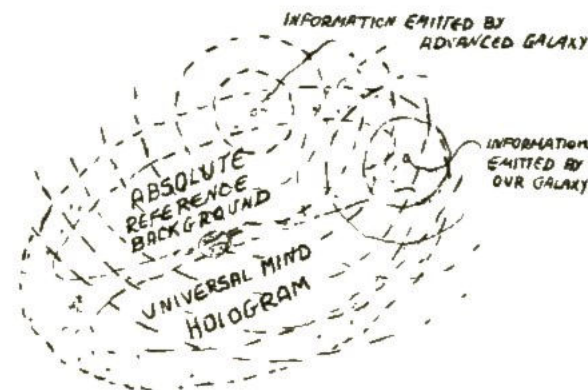 INFORMATION EMITTED BY
ADVANCED GALAXY
INFORMATION
EMITTED BY
OUR GALAXY
ABSOLUTE
REFERENCE
BACKGROUND
UNIVERSAL MIND
HOLOGRAM